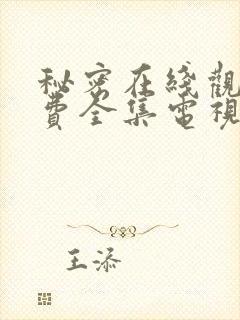 秘密在綫觀
費全集電視
王添